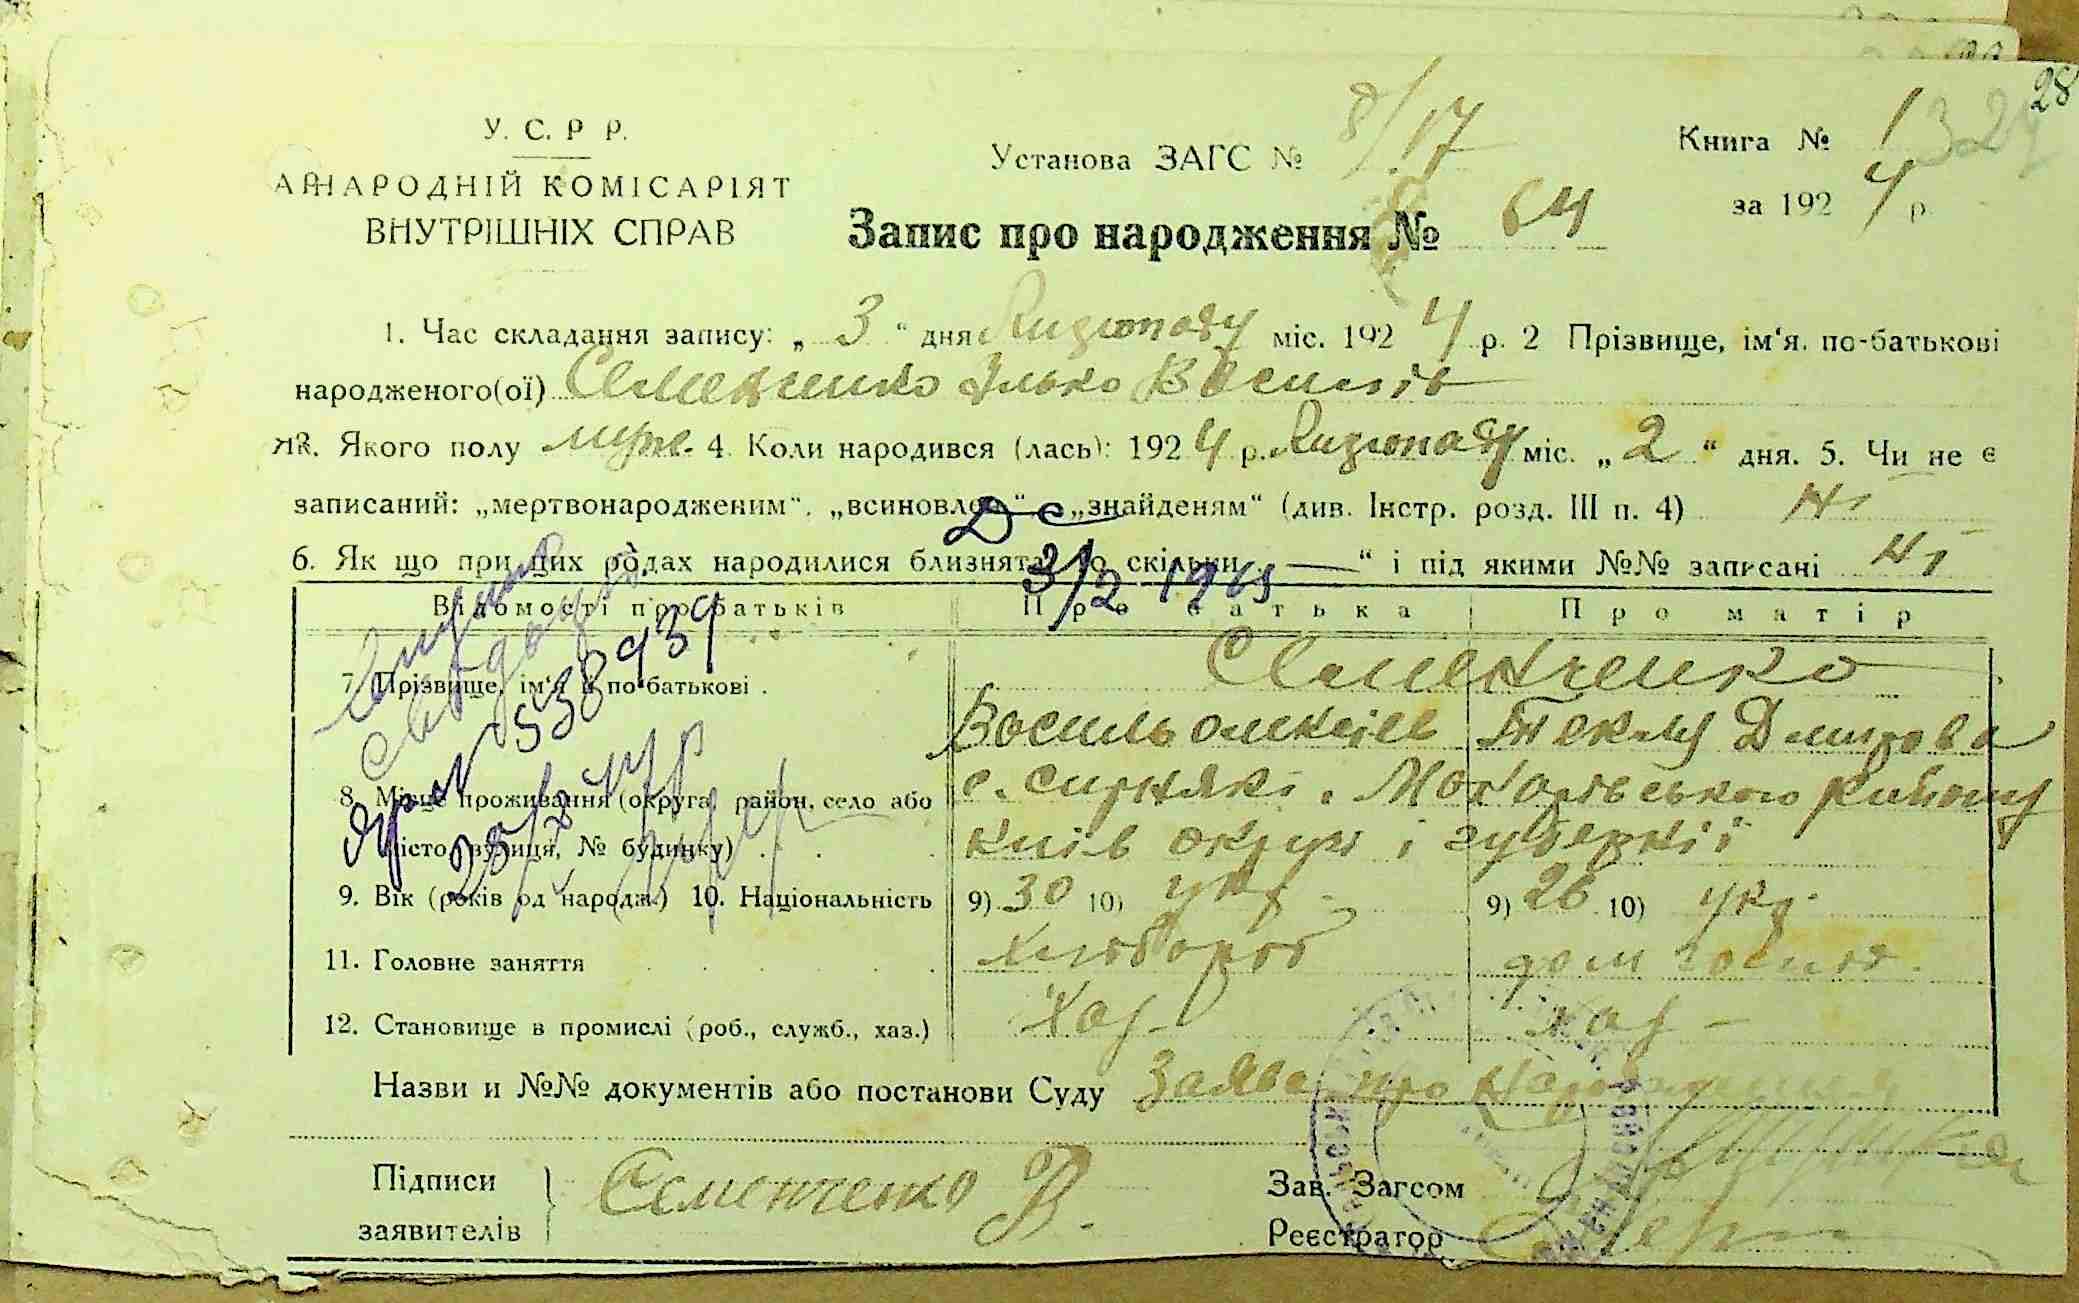 28
У. С. Р Р.
НАРОДНІЙ КОМІСАРІЯТ
ВНУТРІШНІХ СПРАВ
Установа ЗАГС № 8/17
Книга № 1
за 1924 р.
Запис про народження № 64
1. Час складання запису: „ 3 “ дня Лизтопаду міс. 1924 р. 2 Прізвище, ім‘я. по-батькові
народженого(ої) Семенченко Ілько Василів
Якого полу муж. 4. Коли народився (лась): 1924 р. Лизтопаду міс. „ 2 “ дня. 5. Чи не є
записаний: „мертвонародженим“, „всиновлен“ „знайденям“ (див. Інстр. розд. III п. 4) Ні
6. Як що при цих родах народилися близнята, то скільки — “ і під якими №№ записані Ні
3/2 1945
Відомості про батьків Про батька Про матір
7. Прізвище, ім‘я й по-батькові . Семенченко
Василь Олексіїв Текля Дмитрова
538939
8. Місце проживання (округа, район, село або с. Сирняки. Макарівського району
місто, вулиця, № будинку) . . . Київ округи і губернії
9. Вік (років од народж.) 10. Національність 9) 30 10) укр. 9) 26 10) укр.
11. Головне заняття хлібороб дом госпо.
12. Становище в промислі (роб., служб., хаз.) Хаз— хаз—
Назви и №№ документів або постанови Суду Заява про народження
Підписи
заявителів
Семенченко В.
Зав. Загсом
Реєстратор